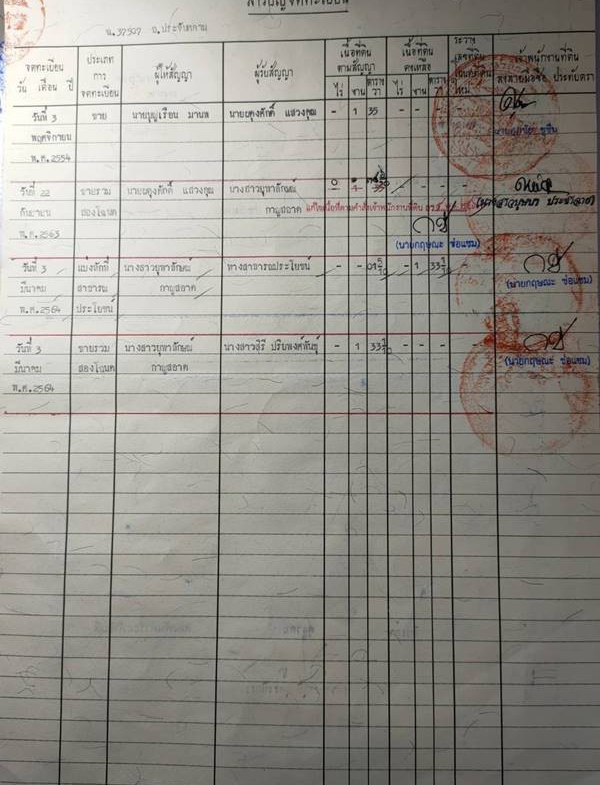 สารบัญจดทะเบียน
น.37507 อ.ประจันตคาม
จดทะเบียน วัน เดือน ปี
ประเภทการจดทะเบียน
ผู้ให้สัญญา
ผู้รับสัญญา
เนื้อที่ดินตามสัญญา
ไร่ งาน ตารางวา
เนื้อที่ดินคงเหลือ
ไร่ งาน ตารางวา
ระวาง เลขที่ดิน
ใหม่
เจ้าพนักงานที่ดิน ลงลายมือชื่อ ประทับตรา
วันที่ 3 ขาย นายบุญเรือน นายผดุงศักดิ์ แสวงคุณ - 1 35 - - -
พฤศจิกายน
พ.ศ.2554
วันที่ 22 ขายรวม นายผดุงศักดิ์ แสวงคุณ นางสาวยุพาลักษณ์
กันยายน สองโฉนด กาญสอาด แก้ไขเนื้อที่ตามคำสั่งเจ้าพนักงานที่ดิน
พ.ศ.2563 (นายกฤษณะ ช่อแซม)
วันที่ 3 แบ่งหักที่ นางสาวยุพาลักษณ์ ทางสาธารณประโยชน์ - - - 1
มีนาคม สาธารณ กาญสอาด (นายกฤษณะ ช่อแซม)
พ.ศ.2564 ประโยชน์
วันที่ 3 ขายรวม นางสาวยุพาลักษณ์ นางสาวสุรี - 1 - - -
มีนาคม สองโฉนด กาญสอาด (นายกฤษณะ ช่อแซม)
พ.ศ.2564